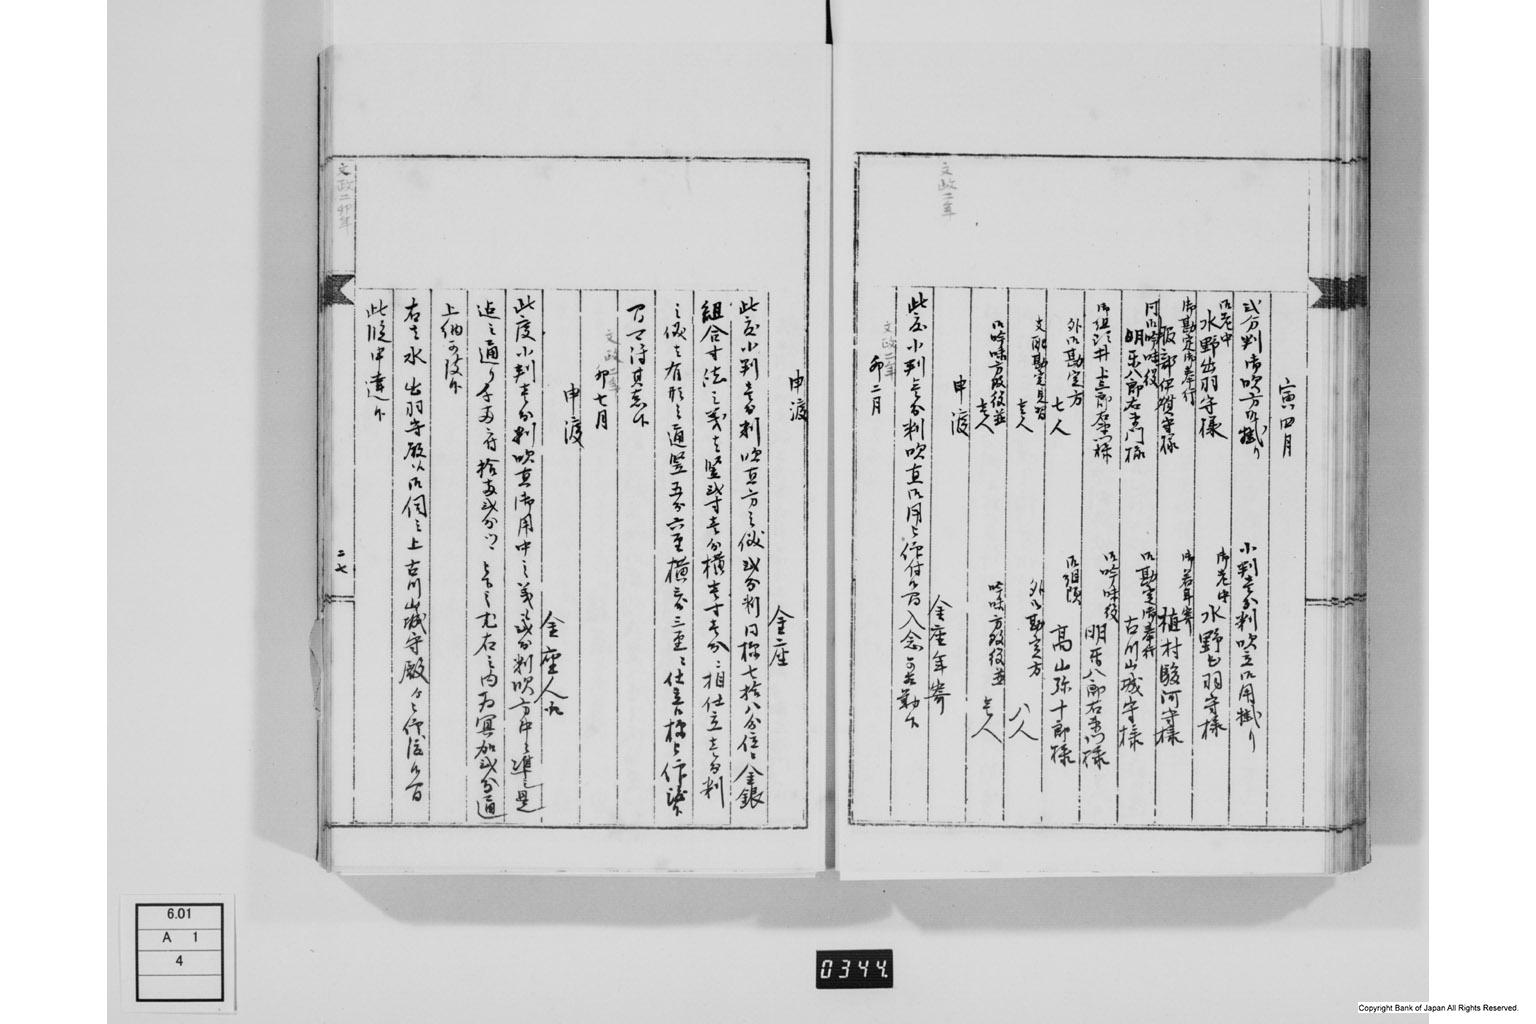 文政二年
寅四月
弐分判御吹方御掛り
小判壱分判吹立御用掛り
御老中
水野出羽守様
御老中
水野出羽守様
御勘定御奉行
服部伊賀守様
御若年寄
植村駿河守様
同御吟味役
明楽八郎右衛門様
御勘定御奉行
古川山城守様
御組頭井上三郎右衛門様
御吟味役
明楽八郎右衛門様
外御勘定方
七人
御組頭
高山弥十郎様
支配勘定見習
壱人
外御勘定方
八人
御吟味方改役並
壱人
吟味方改役並
壱人
申渡
金座年寄
此度小判壱分判吹直御用被仰付候間入念可相勤候
文政二年
卯二月
申渡
金座
此度小判壱分判吹直方之儀弐分判同様七拾八分位金銀
組合寸法之義者竪弐寸壱分横壱寸壱分ニ相仕立壱分判
之儀者有形之通竪五分六厘横三分三厘ニ仕立候様被仰渡候
間可得其意候
文政二年
卯七月
申渡
金座人江
此度小判壱分判吹直御用中之義弐分判吹方中ニ準是
迄之通り千両ニ付拾両弐分ツヽ被下之尤右之内為冥加弐分通
上納可致候
右者水出羽守殿江御伺之上古川山城守殿被仰渡候間
此段申達候
文政二卯年
二七
6.01
A 1
4
0344
Copyright Bank of Japan All Rights Reserved.